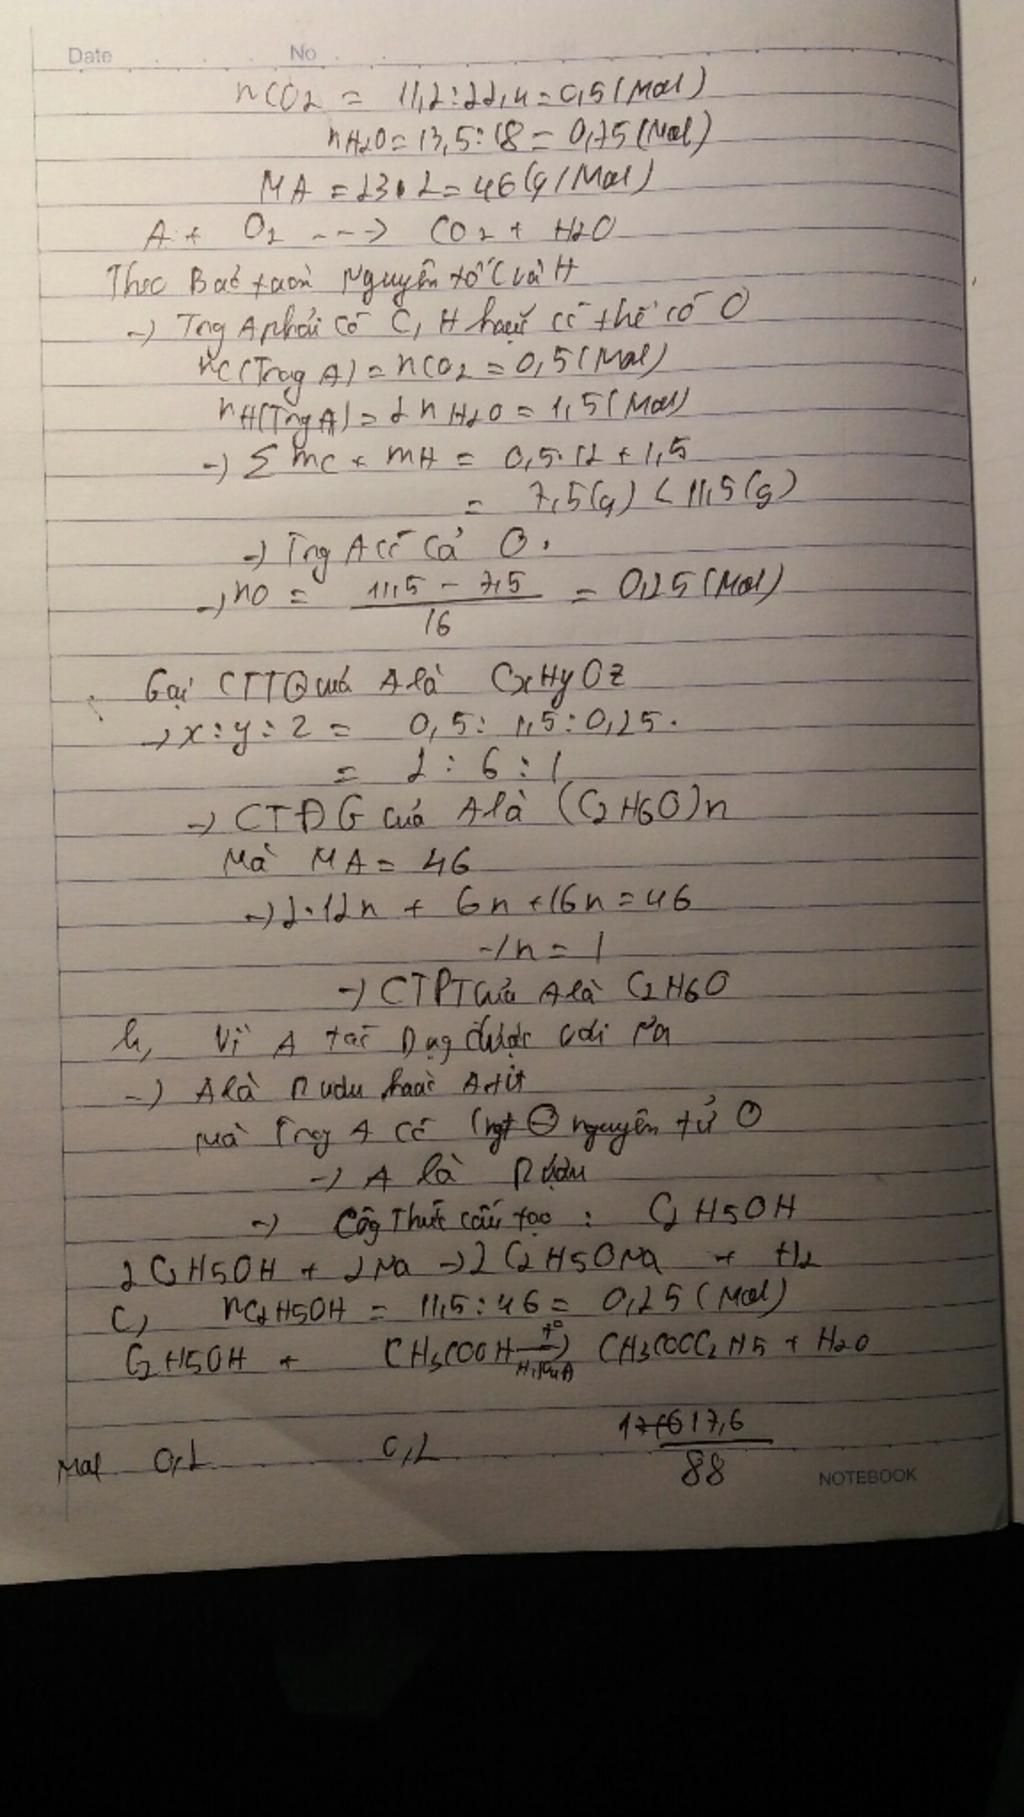 Date No
nCO2 = 11,2:22,4=0,5(Mol)
nH2O=13,5:18=0,75(Mol)
MA = 23.2=46(g/Mol)
A + O2 ---> CO2 + H2O
Theo Bảo toàn Nguyên tố C và H
-> Trng A phải có C, H hoặc có thể có O
nC(Trong A)=nCO2=0,5(Mol)
nH(Trng A)=2nH2O=1,5(Mol)
-> Σ mC + mH = 0,5.12+1,5
= 7,5(g) < 11,5(g)
-> Trng A có cả O.
-> nO = (11,5 - 7,5)/16 = 0,25(Mol)
Gọi CTTQ của A là CxHyOz
-> x:y:z = 0,5:1,5:0,25.
= 2:6:1
-> CTĐG của A là (C2H6O)n
Mà MA = 46
-> 2.12n + 6n+16n=46
-> n = 1
-> CTPT của A là C2H6O
b, Vì A tác Dụng được với Na
-> A là Rượu hoặc Axit
Mà Trng A có 1 nguyên tử O
-> A là Rượu
-> Công Thức cấu tạo : C2H5OH
2C2H5OH + 2Na -> 2C2H5ONa + H2
C, nC2H5OH = 11,5:46= 0,25(Mol)
C2H5OH + CH3COOH -> CH3COOC2H5 + H2O
Mol 0,2 0,2 17,6/88
NOTEBOOK